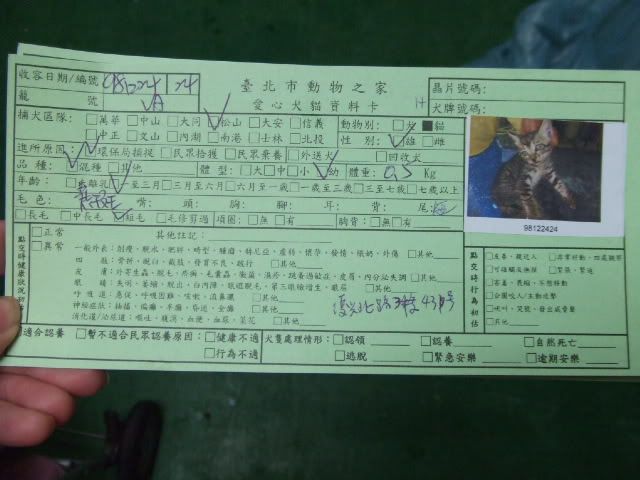 收容日期/編號 981224 24
臺北市動物之家
愛心犬貓資料卡
晶片號碼:
犬牌號碼:
籠號
捕犬區隊: □萬華 □中山 □大同 □松山 □大安 □信義
□中正 □文山 □內湖 □南港 □士林 □北投
動物別: □犬 ■貓
性別: □雄 □雌
進所原因: □環保局捕捉 □民眾拾獲 □民眾棄養 □外送犬 □回收犬
品種: □混種 □其他
體型: □大□中□小□幼 體重: 0.5 Kg
年齡: □未離乳 □至三月 □三月至六月 □六月至一歲 □一歲至三歲 □三至七歲 □七歲以上
毛色: 背: 頭: 胸: 腳: 耳: 背: 尾:
□長毛 □中長毛 □短毛 □毛修剪過 項圈: □無 □有 胸背: □無□有
98122424
點交時健康狀況初估
□正常
□異常
其他註記:
一般外表: 削瘦、脫水、肥胖、畸型、腫瘤、林尼亞、產轉、懷孕、發情、脹奶、外傷 □其他
四肢: 骨折、脫臼、截肢、發育不良、跛行 □其他
皮膚: 外寄生蟲、脫毛、疥癬、毛囊蟲、黴菌、濕疹、跳蚤過敏症、皮屑、內分泌失調 □其他
眼睛: 失明、萎縮、脫出、白內障、眼瞼脫毛、第三眼瞼增生、眼屎 □其他
呼吸道: 急促、呼吸困難、咳嗽、流鼻膿 □其他
神經症狀: 抽搐、偏癱、半癱、昏迷、全癱 □其他
消化道/泌尿道: 嘔吐、腹瀉、血便、血尿、菜花 □其他
復興北路
點交時行為初估
□友善、親近人 □非常好動、四處觀察
□可碰觸及撫摸 □緊張、緊迫
□害羞、畏縮、不想移動
□企圖咬人/主動攻擊
□吠叫、哭號、發出威脅聲
□其他
□適合認養 □暫不適合民眾認養原因: □健康不適
□行為不適
犬隻處理情形: □認領 □認養 □自然死亡
□逃脫 □緊急安樂 □逾期安樂